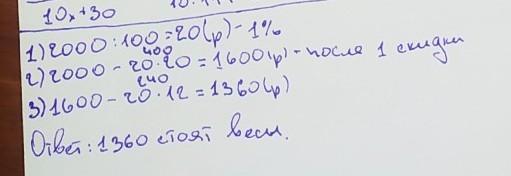 10x+30
1) 2000 : 100 = 20(р) - 1%
400
2) 2000 - 20·20 = 1600(р) - после 1 скидки
240
3) 1600 - 20·12 = 1360(р)
Ответ: 1360 стоят весы.